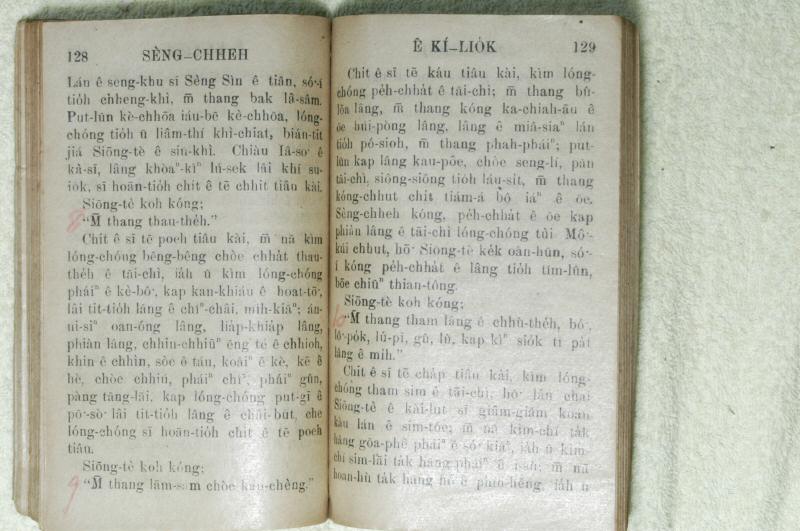 128 SÈNG-CHHEH
Lán ê seng-khu sī Sèng Sîn ê tiān, só͘-í
tio̍h chheng-khì, m̄ thang bak lâ-sâm.
Put-lūn kè-chhōa iáu-bē kè-chhōa, lóng-
chóng tio̍h ū liâm-thí khì-chiat, bián-tit
jiá Siōng-tè ê siū-khì. Chiàu Iâ-so͘ ê
kà-sī, lâng khòaⁿ-kìⁿ lú-sek lâi khí su-
io̍k, sī hoān-tio̍h chit ê tē chhit tiâu kài.
Siōng-tè koh kóng;
8 “M̄ thang thau-the̍h.”
Chit ê sī tē poeh tiâu kài, m̄ nā kìm
lóng-chóng bêng-bêng chòe chha̍t thau-
the̍h ê tāi-chì, ia̍h ū kìm lóng-chóng
pháiⁿ ê kè-bô͘, kap kan-khiáu ê hoat-tō͘,
lâi tit-tio̍h lâng ê chîⁿ-châi, mi̍h-kiāⁿ; án-
ni-siⁿ oan-óng lâng, lia̍p-khiap lâng,
phiàn lâng, chhin-chhiūⁿ ēng té ê chhioh,
khin ê chhìn, sòe ê táu, koâiⁿ ê kè, kē ê
hè, chòe chhiú, pháiⁿ chîⁿ, pháiⁿ gûn,
pàng tāng-lāi, kap lóng-chóng put-gī ê
pō͘-sò͘ lâi tit-tio̍h lâng ê châi-bu̍t, che
lóng-chóng sī hoān-tio̍h chit ê tē poeh
tiâu.
Siōng-tè koh kóng;
9 “M̄ thang lām-sám chòe kan-chèng.”
Ê KÍ-LIO̍K 129
Chit ê sī tē káu tiâu kài, kìm lóng-
chóng pe̍h-chha̍t ê tāi-chì; m̄ thang bú-
lōa lâng, m̄ thang kóng ka-chiah-āu ê
ōe húi-pòng lâng, lâng ê miâ-siaⁿ lán
tio̍h pó-sioh, m̄ thang phah-pháiⁿ; put-
lūn kap lâng kau-pôe, chòe seng-lí, pān
tāi-chì, siông-siông tio̍h láu-si̍t, m̄ thang
kóng-chhut chit tiám-á bô iáⁿ ê ōe.
Sèng-chheh kóng, pe̍h-chha̍t ê ōe kap
phiàn lâng ê tāi-chì lóng-chóng tùi Mô͘-
kúi chhut, hō͘ Siōng-tè ke̍k oàn-hūn, só͘-
í kóng pe̍h-chha̍t ê lâng tio̍h tîm-lûn,
bōe chiūⁿ thian-tông.
Siōng-tè koh kóng;
10 “M̄ thang tham lâng ê chhù-the̍h, bó͘,
lô͘-po̍k, lú-pī, gû, lû, kap kìⁿ sio̍k tī pa̍t
lâng ê mi̍h.”
Chit ê sī tē cha̍p tiâu kài, kìm lóng-
chóng tham sim ê tāi-chì; hō͘ lán chai
Siōng-tè ê kài-lu̍t sī giâm-giâm koán
kàu lán ê sim-tóe; m̄ nā kìm-chí ta̍k
hāng gōa-phê pháiⁿ ê só͘ kiâⁿ, ia̍h ū kìm-
chí sim-lāi ta̍k hāng pháiⁿ ê
hoan-hù ta̍k hāng hó ê phín-hēng, ia̍h ū